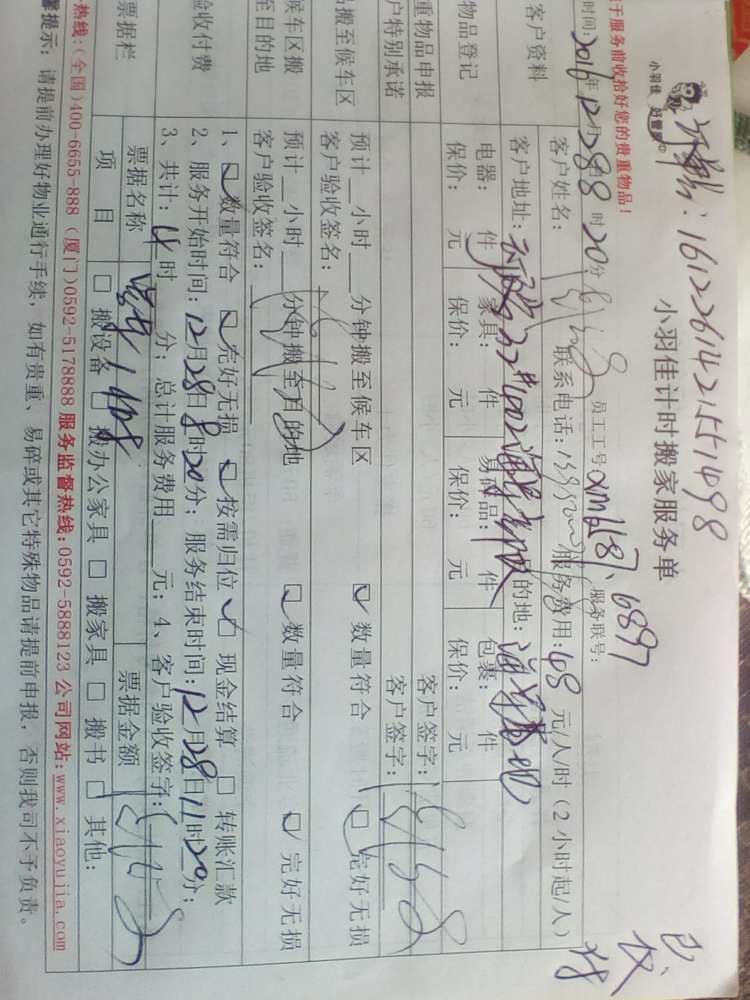 订单号：1612261421551498
小羽佳 好管家
小羽佳计时搬家服务单
于服务前收拾好您的贵重物品！
员工工号 xm6187、6897 服务联号：
时间：2016年12月28日8时20分
客户资料
客户姓名： 联系电话： 服务费用：48 元/人/时（2小时起/人）
客户地址： 目的地：
物品登记
电器： 件 家具： 件 易碎品： 件 包裹： 件
保价： 元 保价： 元 保价： 元 保价： 元
重物品申报 客户签字：
户特别承诺 客户签字：
品搬至候车区
预计__小时__分钟搬至候车区 数量符合 完好无损
客户验收签名：
候车区搬至目的地
预计__小时__分钟搬至目的地 数量符合 完好无损
客户验收签名：
验收付费
1、数量符合 完好无损 按需归位 现金结算 转账汇款
2、服务开始时间：12月28日8时20分；服务结束时间：12月28日11时20分；
3、共计：4时 分；总计服务费用 元；4、客户验收签字：
票据栏
票据名称 票据金额
项 目 搬设备 搬办公家具 搬家具 搬书 其他：
热线：(全国)400-6655-888 (厦门)0592-5178888 服务监督热线：0592-5888123 公司网站：www.xiaoyujia.com
馨提示：请提前办理好物业通行手续，如有贵重、易碎或其它特殊物品请提前申报，否则我司不予负责。